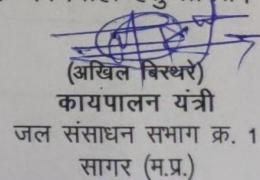 (अखिल बिरथरे)
कार्यपालन यंत्री
जल संसाधन सभाग क्र. 1
सागर (म.प्र.)